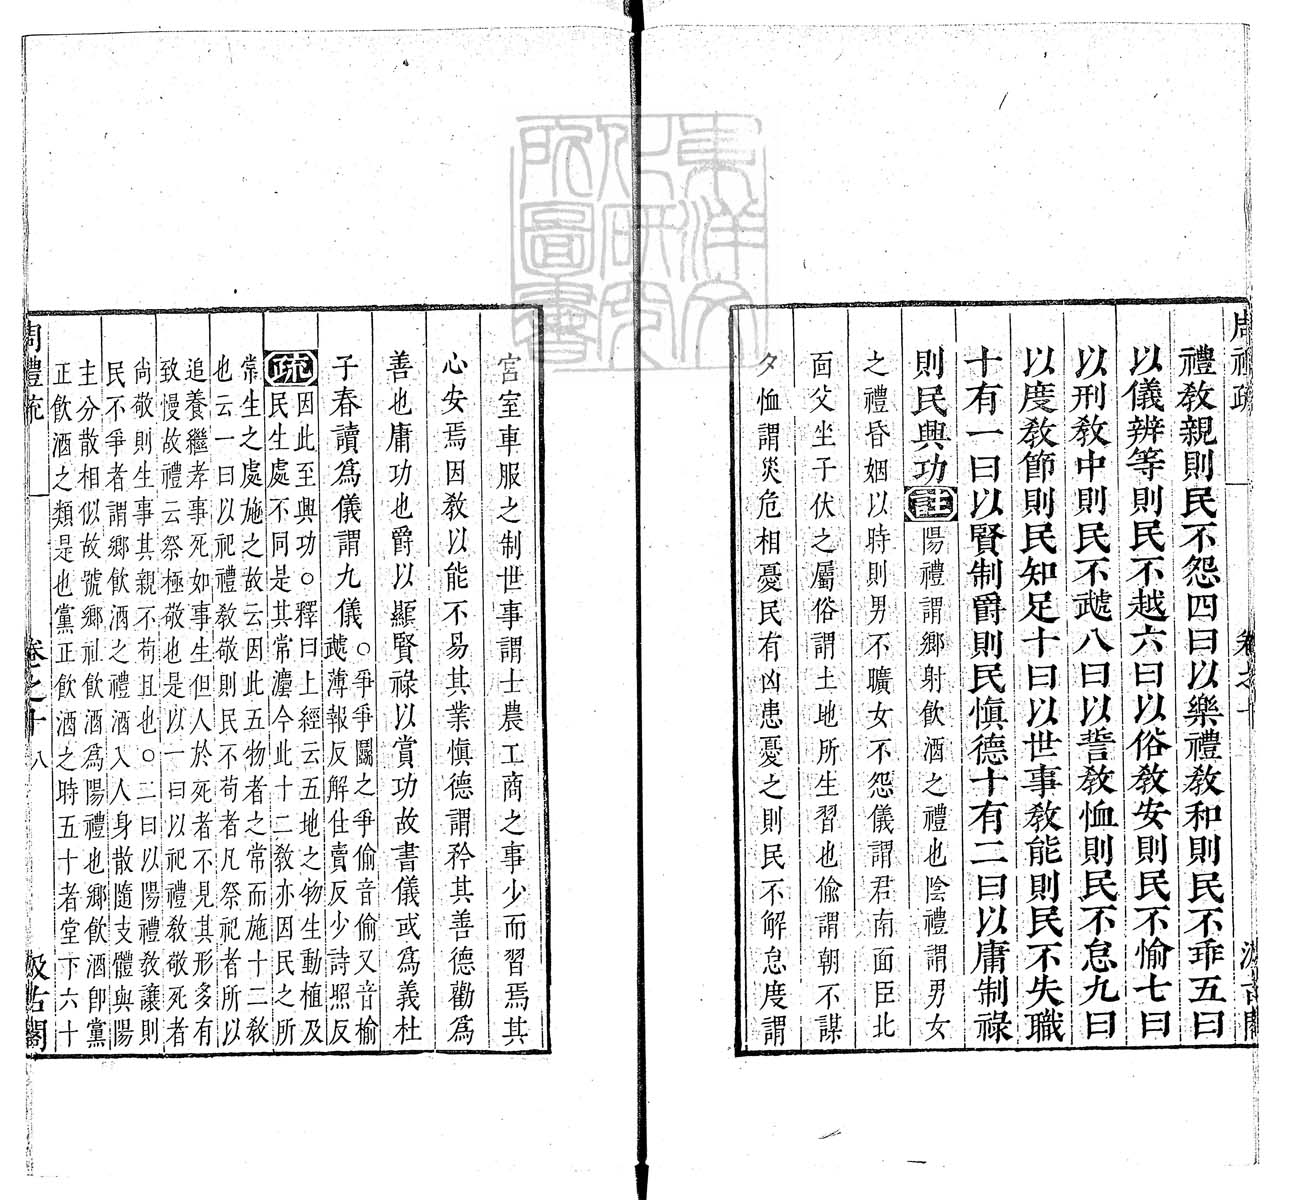 周禮疏 卷之十 汲古閣
禮教親則民不怨四曰以樂禮教和則民不乖五曰
以儀辨等則民不越六曰以俗教安則民不愉七曰
以刑教中則民不虣八曰以誓教恤則民不怠九曰
以度教節則民知足十曰以世事教能則民不失職
十有一曰以賢制爵則民愼德十有二曰以庸制祿
則民興功註陽禮謂鄉射飮酒之禮也陰禮謂男女
之禮昏姻以時則男不曠女不怨儀謂君南面臣北
面父坐子伏之屬俗謂土地所生習也偸謂朝不謀
夕恤謂災危相憂民有凶患憂之則民不解怠度謂
宮室車服之制世事謂士農工商之事少而習焉其
心安焉因教以能不易其業愼德謂矜其善德勸爲
善也庸功也爵以顯賢祿以賞功故書儀或爲義杜
子春讀爲儀謂九儀○爭爭鬭之爭偷音偷又音榆
虣薄報反解佳賣反少詩照反
疏因此至興功○釋曰上經云五地之物生動植及
民生處不同是其常灋今此十二教亦因民之所
常生之處施之故云因此五物者之常而施十二教
也云一曰以祀禮教敬則民不苟者凡祭祀者所以
追養繼孝事死如事生但人於死者不見其形多有
致慢故禮云祭極敬也是以一曰以祀禮教敬死者
尚敬則生事其親不苟且也○二曰以陽禮教讓則
民不爭者謂鄉飮酒之禮酒入人身散隨支體與陽
主分散相似故號鄉祉飮酒爲陽禮也鄉飮酒卽黨
正飮酒之類是也黨正飮酒之時五十者堂下六十
周禮疏 卷之十 八 汲古閣
東洋文化研究所圖書